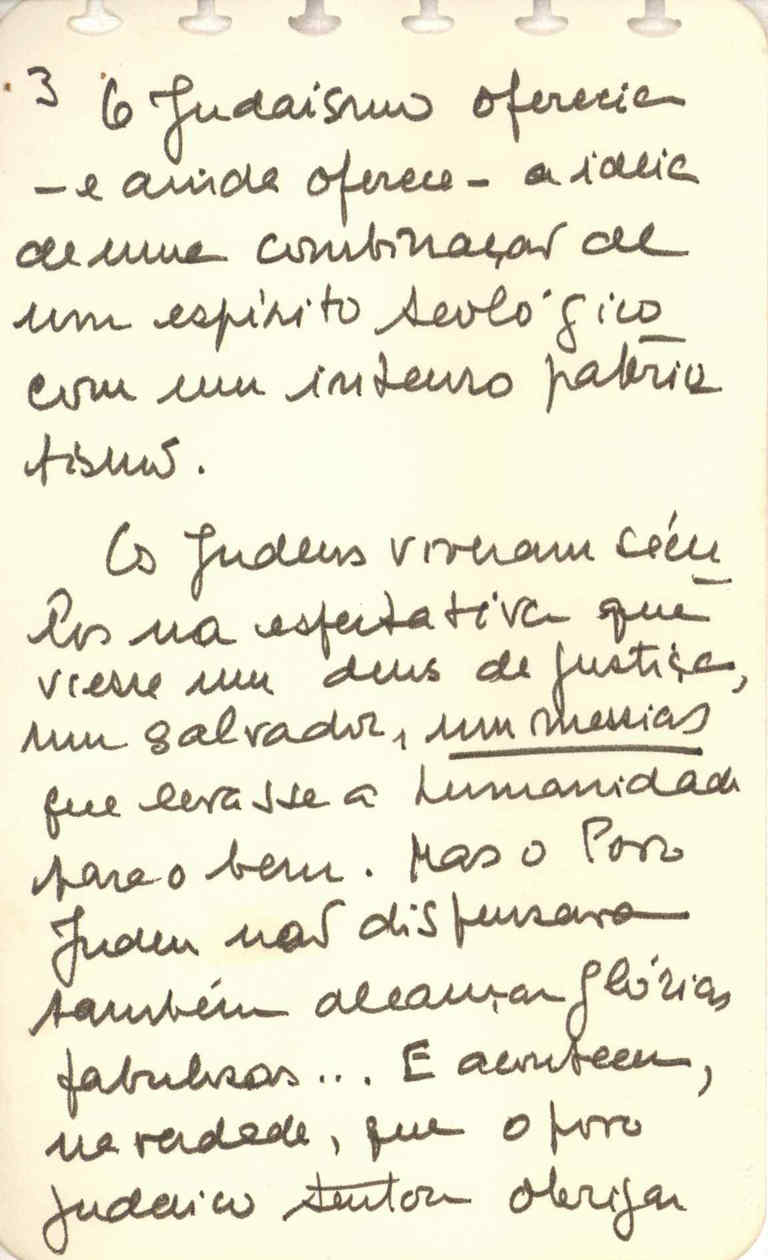 3 O Judaismo oferecia
- e ainda oferece - a ideia
de uma combinação de
um espírito teológico
com um intenso patrio
tismo.
Os Judeus viveram sécu
los na espectativa que
viesse um deus de justiça,
um salvador, um messias
que levasse a humanidade
para o bem. Mas o Povo
Judeu não dispensava
também alcançar glórias
fabulosas... E aconteceu,
na verdade, que o povo
judaico tentou obrigar